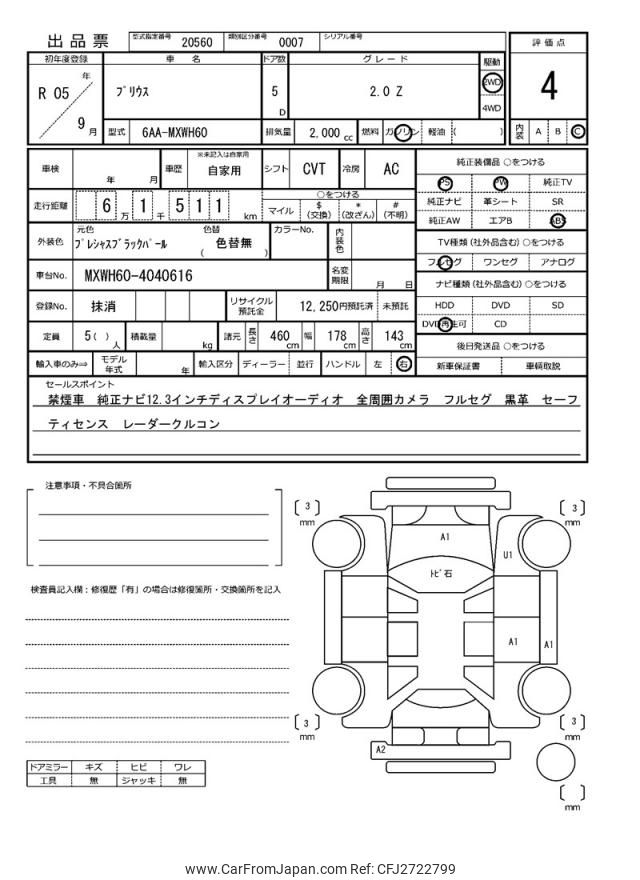 出品票 型式指定番号 20560 類別区分番号 0007 シリアル番号
評価点
4
内装 A B C
初年度登録 車名 ドア数 グレード 駆動
R 05 年 9 月
プリウス
5 D
2.0 Z
2WD
4WD
型式 6AA-MXWH60 排気量 2,000 cc 燃料 ガソリン 軽油 ( )
車検 年 月 車歴 ※未記入は自家用 自家用 シフト CVT 冷房 AC
走行距離 6 万 1 千 5 1 1 km
○をつける
マイル $ (交換) * (改ざん) # (不明)
外装色 元色 プレシャスブラックパール 色替 ( 色替無 ) カラーNo. 内装色
車台No. MXWH60-4040616 名変期限 月 日
登録No. 抹消 リサイクル預託金 12,250円預託済 未預託
定員 5 ( ) 人 積載量 kg 諸元 長さ 460 cm 幅 178 cm 高さ 143 cm
輸入車のみ⇒ モデル年式 年 輸入区分 ディーラー 並行 ハンドル 左 右
純正装備品 ○をつける
PS PW 純正TV
純正ナビ 革シート SR
純正AW エアB ABS
TV種類 (社外品含む) ○をつける
フルセグ ワンセグ アナログ
ナビ種類 (社外品含む) ○をつける
HDD DVD SD
DVD再生可 CD
後日発送品 ○をつける
新車保証書 車輌取説
セールスポイント
禁煙車 純正ナビ12.3インチディスプレイオーディオ 全周囲カメラ フルセグ 黒革 セーフ
ティセンス レーダークルコン
注意事項・不具合箇所
検査員記入欄：修復歴「有」の場合は修復箇所・交換箇所を記入
ドアミラー キズ ヒビ ワレ
工具 無 ジャッキ 無
3 mm
3 mm
A1
U1
トビ石
A1
A1
3 mm
3 mm
A2
mm
www.CarFromJapan.com Ref: CFJ2722799